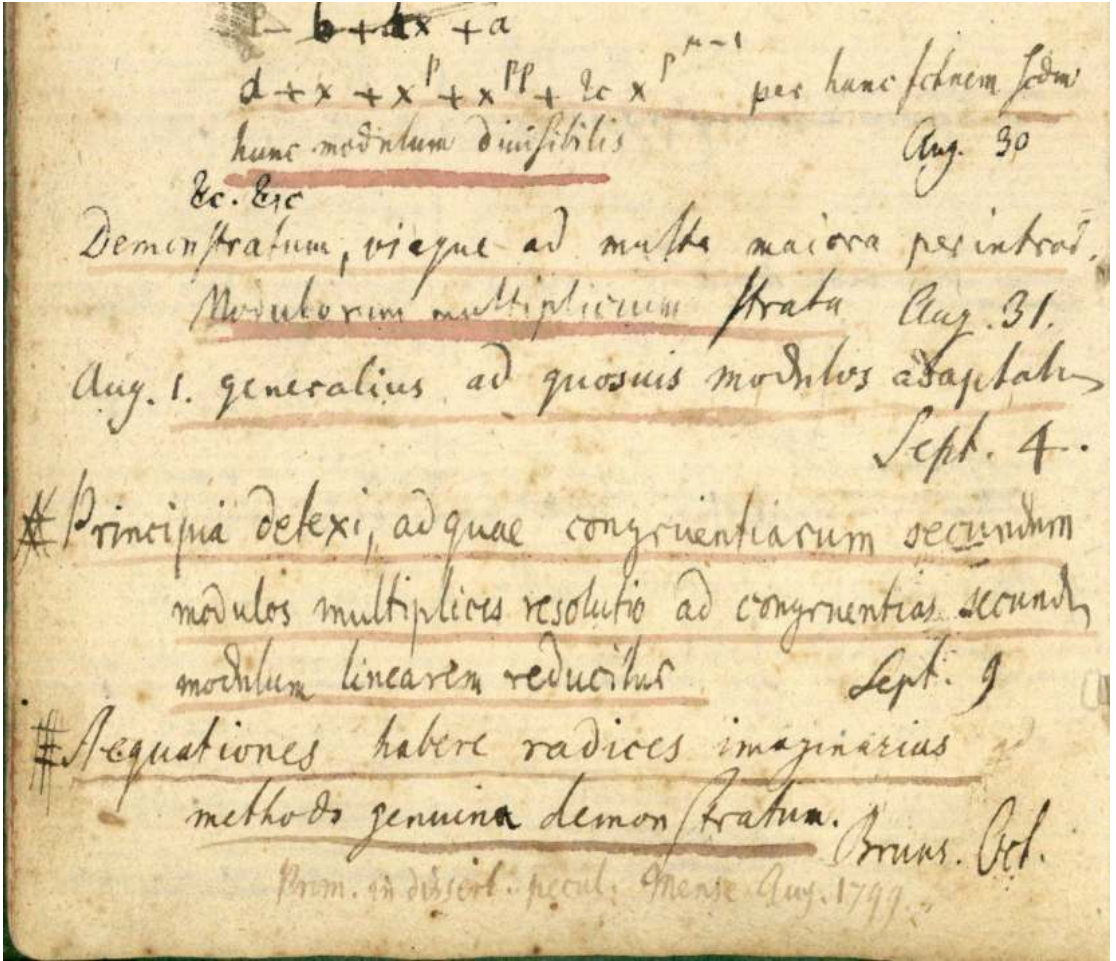 b + dx + a
a + x + x^p + x^pp + &c x^p^μ-1 per hanc fctnem scdm
hunc modulum divisibilis Aug. 30
&c. &c
Demonstratum, viaque ad multa maiora per introd.
Modulorum multiplicium strata Aug. 31.
Aug. 1. generalius ad quosvis modulos adaptatum
Sept. 4.
# Principia detexi, ad quae congruentiarum secundum
modulos multiplices resolutio ad congruentias secundum
modulum linearem reducitur Sept. 9
# Aequationes habere radices imaginarias
methodo genuina demonstratum. Bruns. Oct.
Prom. in dissert. pecul. Mense Aug. 1799